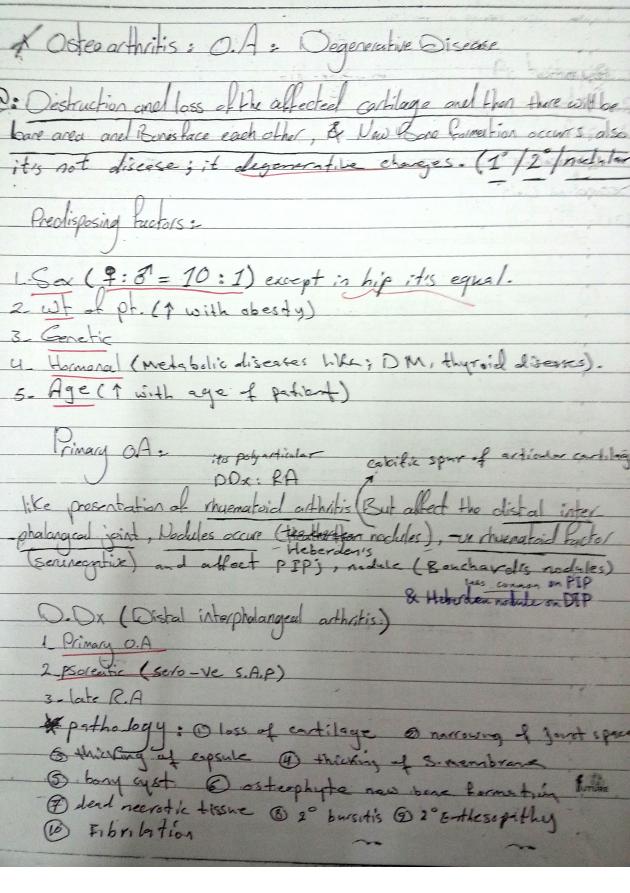 * Osteoarthritis: O.A = Degenerative Disease
D: Destruction and loss of the affected cartilage and then there will be
bare area and Bones face each other, & New Bone formation occurs also
it's not disease; it degenerative changes. (1°/2°/nodular
Predisposing factors:
1. Sex (♀:♂ = 10:1) except in hip it's equal.
2- wt of pt. (↑ with obesty)
3- Genetic
4- Hormonal (Metabolic diseases like; DM, thyroid diseases).
5- Age (↑ with age of patient)
Primary OA:
its polyarticular
DDx: RA
calcific spur of articular cartilag
like presentation of rhuematoid arthritis (But affect the distal inter
phalangeal joint, Nodules occure ( nodules), -ve rhuematoid factor
Heberden's
(seninegative) and affect PIPj, nodule (Bouchard's nodules)
less common on PIP
& Heberden nodule on DIP
D.Dx (Distal interphalangeal arthritis:)
1- Primary O.A
2- psoreatic (sero-ve S.A.P)
3- late R.A
* pathology: ① loss of cartilage ② narrowing of joint space
③ thicking of capsule ④ thicking of S. membrane
⑤ bony cyst ⑥ osteophyte new bone formation
⑦ dead necrotic tissue ⑧ 2° bursitis ⑨ 2° Enthesopathy
⑩ Fibrilation